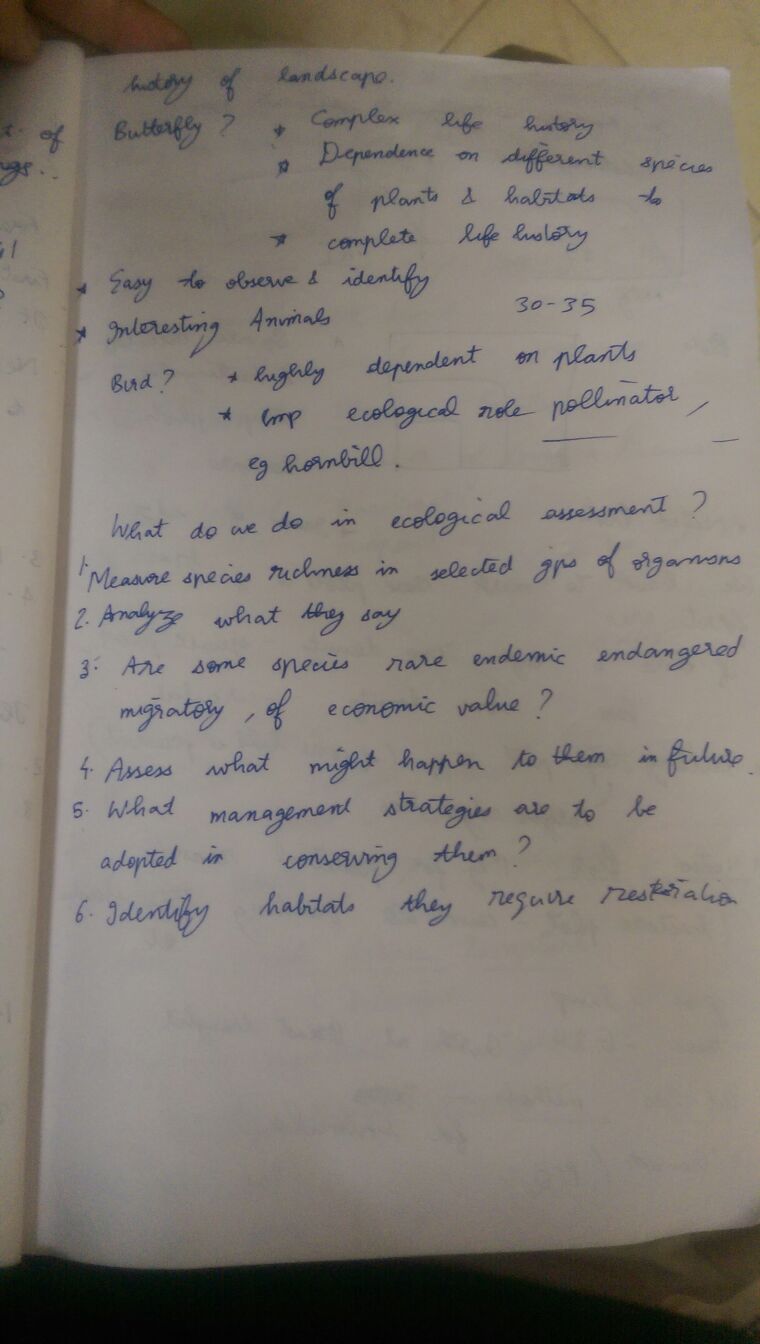 history of landscape.
Butterfly? * Complex life history
* Dependence on different species
of plants & habitats to
* complete life history
* Easy to observe & identify
* Interesting Animals 30-35
Bird? * highly dependent on plants
* Imp ecological role pollinator,
eg hornbill.
What do we do in ecological assessment?
1. Measure species richness in selected gps of organisms
2. Analyze what they say
3. Are some species rare endemic endangered
migratory, of economic value?
4. Assess what might happen to them in future.
5. What management strategies are to be
adopted in conserving them?
6. Identify habitats they require restoration